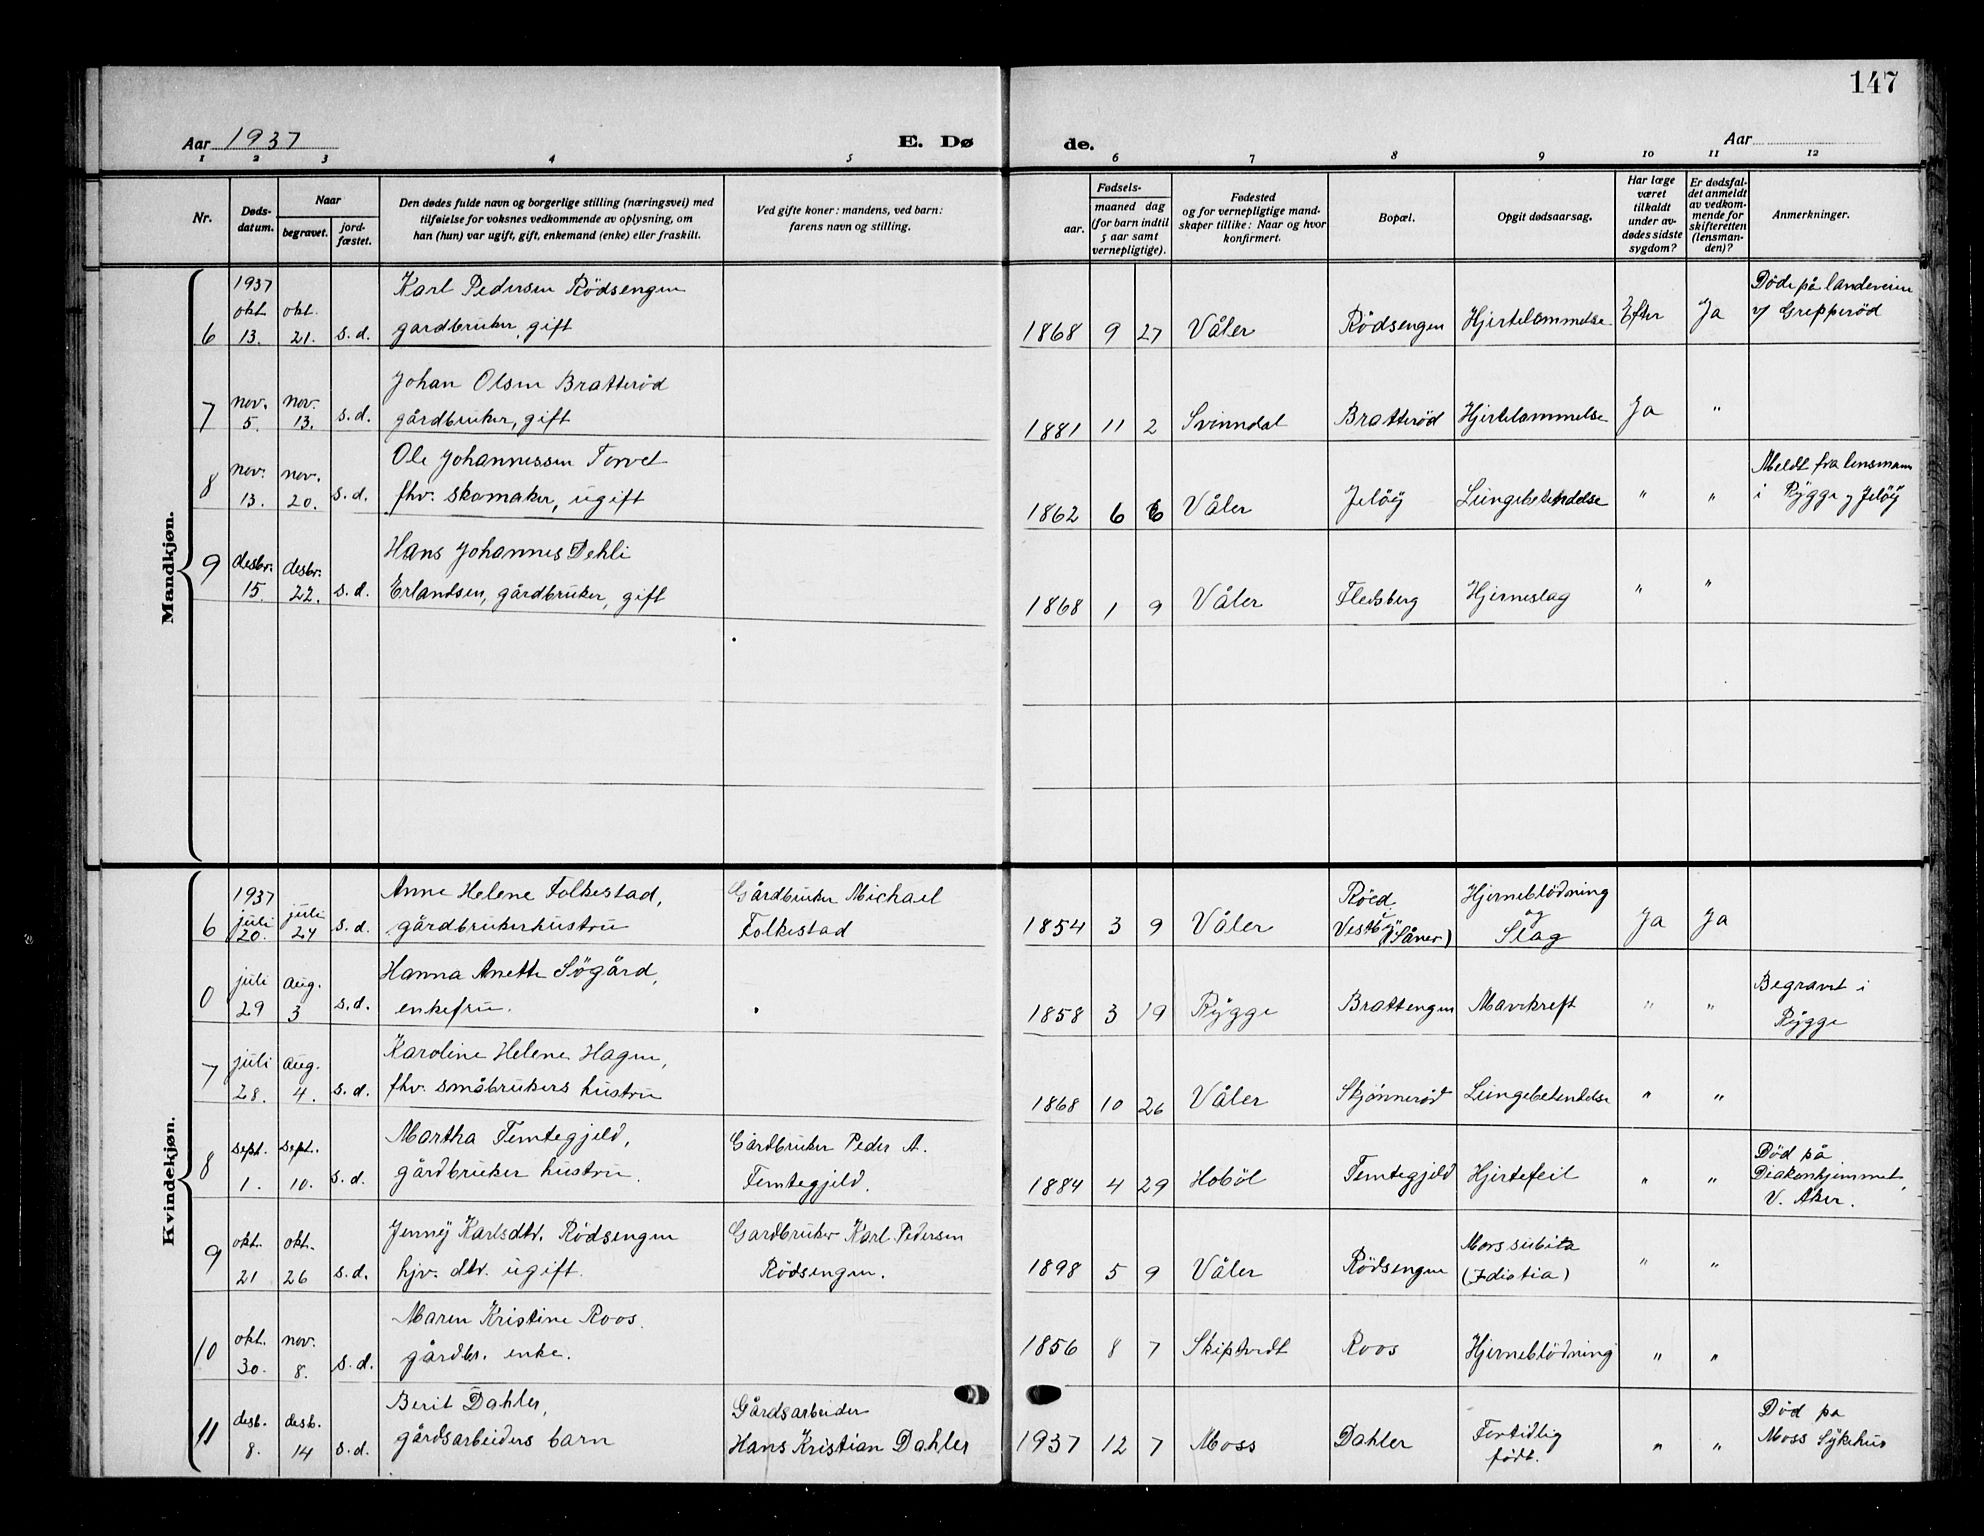 147
Aar 1937
E. Dø
de.
Aar
1 2 3 4 5 6 7 8 9 10 11 12
Nr.
Døds-
datum.
Naar
begravet.
jord-
fæstet.
Den dødes fulde navn og borgerlige stilling (næringsvei) med
tilføielse for voksnes vedkommende av oplysning, om
han (hun) var ugift, gift, enkemand (enke) eller fraskilt.
Ved gifte koner: mandens, ved barn:
farens navn og stilling.
Fødsels-
aar.
maaned dag
(for barn indtil
5 aar samt
vernepligtige).
Fødested
og for vernepligtige mand-
skaper tillike: Naar og hvor
konfirmert.
Bopæl.
Opgit dødsaarsag.
Har læge
været
tilkaldt
under av-
dødes sidste
sygdom?
Er dødsfal-
det anmeldt
av vedkom-
mende for
skifteretten
(lensman-
den)?
Anmerkninger.
Mandkjøn.
6
1937
okt.
13.
okt.
21.
s.d.
Karl Pedersen Rödsengen
gardbruker, gift
1868 9 27 Våler Rödsengen Hjertelammelse Efter Ja
Döde på landeveien
v/ Grepperöd
7
nov.
5.
nov.
13.
s.d.
Johan Olsen Bratteröd
gårdbruker, gift
1881 11 2 Svinndal Bratteröd Hjertelammelse Ja "
8
nov.
13.
nov.
20.
s.d.
Ole Johannessen Torvet
fhv. skomaker, ugift
1862 6 6 Våler Jelöy Lungebetendelse " "
Meldt fra lensmann
i Rygge og Jelöy
9
desbr.
15.
desbr.
22.
s.d.
Hans Johannes Dehli
Erlandsen, gårdbruker, gift
1868 1 9 Våler Flesberg Hjerneslag " "
Kvindekjøn.
6
1937
juli
20.
juli
24
s.d.
Anne Helene Folkestad,
gårdbrukerhustru
Gårdbruker Michael
Folkestad
1854 3 9 Våler
Röed
Vestby (Såner)
Hjerneblödning
og
Slag
Ja Ja
0
juli
29
aug.
3
s.d.
Hanna Anette Sögård,
enkefru.
1858 3 19 Rygge Brattengen Mavekreft " "
Begravet i
Rygge
7
juli
28.
aug.
4.
s.d.
Karoline Helene Hagen,
fhv. småbrukers hustru
1868 10 26 Våler Skjønneröd Lungebetendelse " "
8
sept.
1.
sept.
10.
s.d.
Martha Temtegjeld,
gårdbruker hustru.
Gårdbruker Peder A.
Temtegjeld.
1884 4 29 Hoböl Temtegjeld Hjertefeil " "
Död på
Diakonhjemmet,
V. Aker.
9
okt.
21
okt.
26
s.d.
Jenny Karlsdtr. Rödsengen
hjv. dtr. ugift.
Gardbruker Karl Pedersen
Rödsengen.
1898 5 9 Våler Rödsengen
Mors subita
(Idiotia)
" "
10
okt.
30.
nov.
8.
s.d.
Maren Kristine Roos.
gårdbr. enke.
1856 8 7 Skiptvedt Roos Hjerneblödning " "
11
desb.
8.
desb.
14
s.d.
Berit Dahler,
gårdsarbeiders barn
Gårdsarbeider
Hans Kristian Dahler
1937 12 7 Moss Dahler
Fortidlig
födt.
" "
Död på
Moss Sykehus